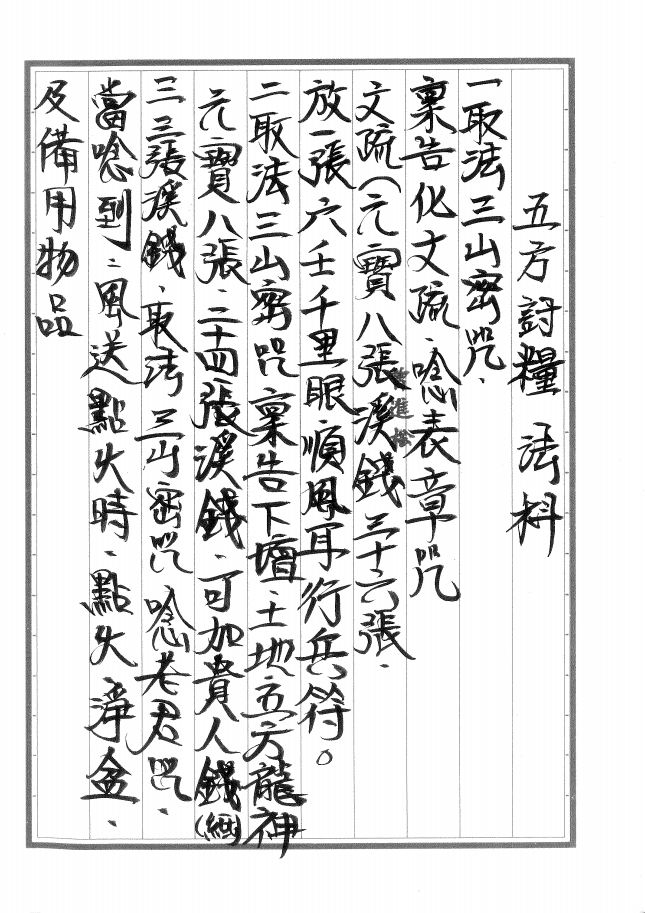 五方討糧法科
一取法三山密咒、
稟告化文疏、唸表章咒
文疏(元寶八張溪錢三十六張、
放一張六壬千里眼順風耳行兵符。
二取法三山密咒稟告下壇、土地五方龍神
元寶八張、二十四張溪錢、可加貴人錢(綑)
三三張溪錢、取法三山密咒唸老君咒、
當唸到:風送點火時、點火淨盆、
及備用物品